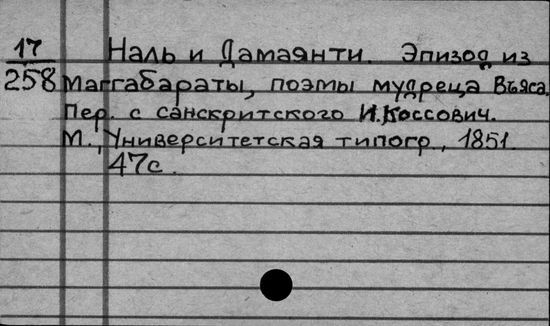 17 Наль и Дамаянти. Эпизод из
258 Маггабараты, поэмы мудреца Въяса.
Пер. с санскритского И.Коссович.
М., Университетская типогр., 1851.
47с.